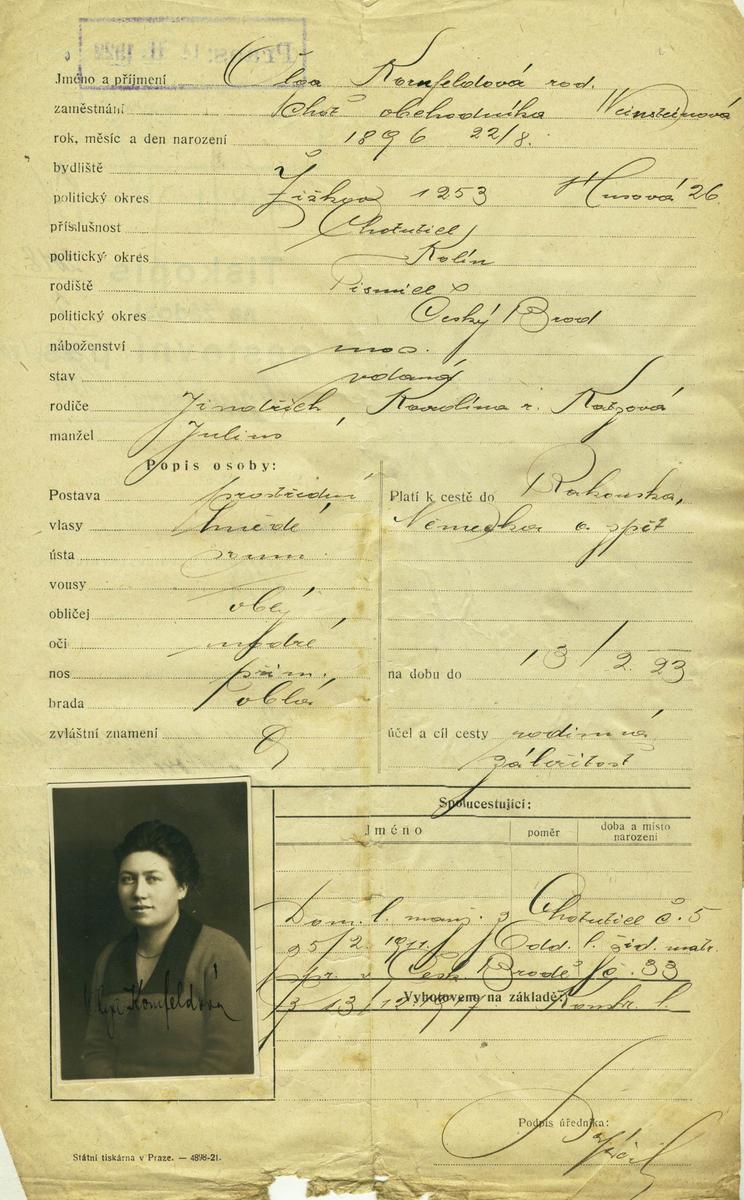 Jméno a příjmení Olga Kornfeldová roz.
zaměstnání choť obchodníka Weinsteinová
rok, měsíc a den narození 1896 22/8.
bydliště
politický okres Žižkov 1253 Husova 26.
příslušnost Chotutice
politický okres Kolín
rodiště
politický okres Český Brod
náboženství mos.
stav vdaná
rodiče Jindřich, Karolina r. Katzová
manžel Julius
Popis osoby:
Postava prostřední
vlasy hnědé
ústa
vousy
obličej oblý
oči modré
nos přim.
brada oblá
zvláštní znamení
Platí k cestě do Rakouska,
Německa a zpět
na dobu do 13/2 23
účel a cíl cesty rodinná
záležitost
Spolucestující:
Jméno poměr doba a místo narození
Dom. l. Chotutice č. 5
Odd. l. žid. matr.
v Česk. Brodě č. 33
Vyhotoveno na základě:
Kornfeldová
Podpis úředníka:
Státní tiskárna v Praze. — 4898-21.